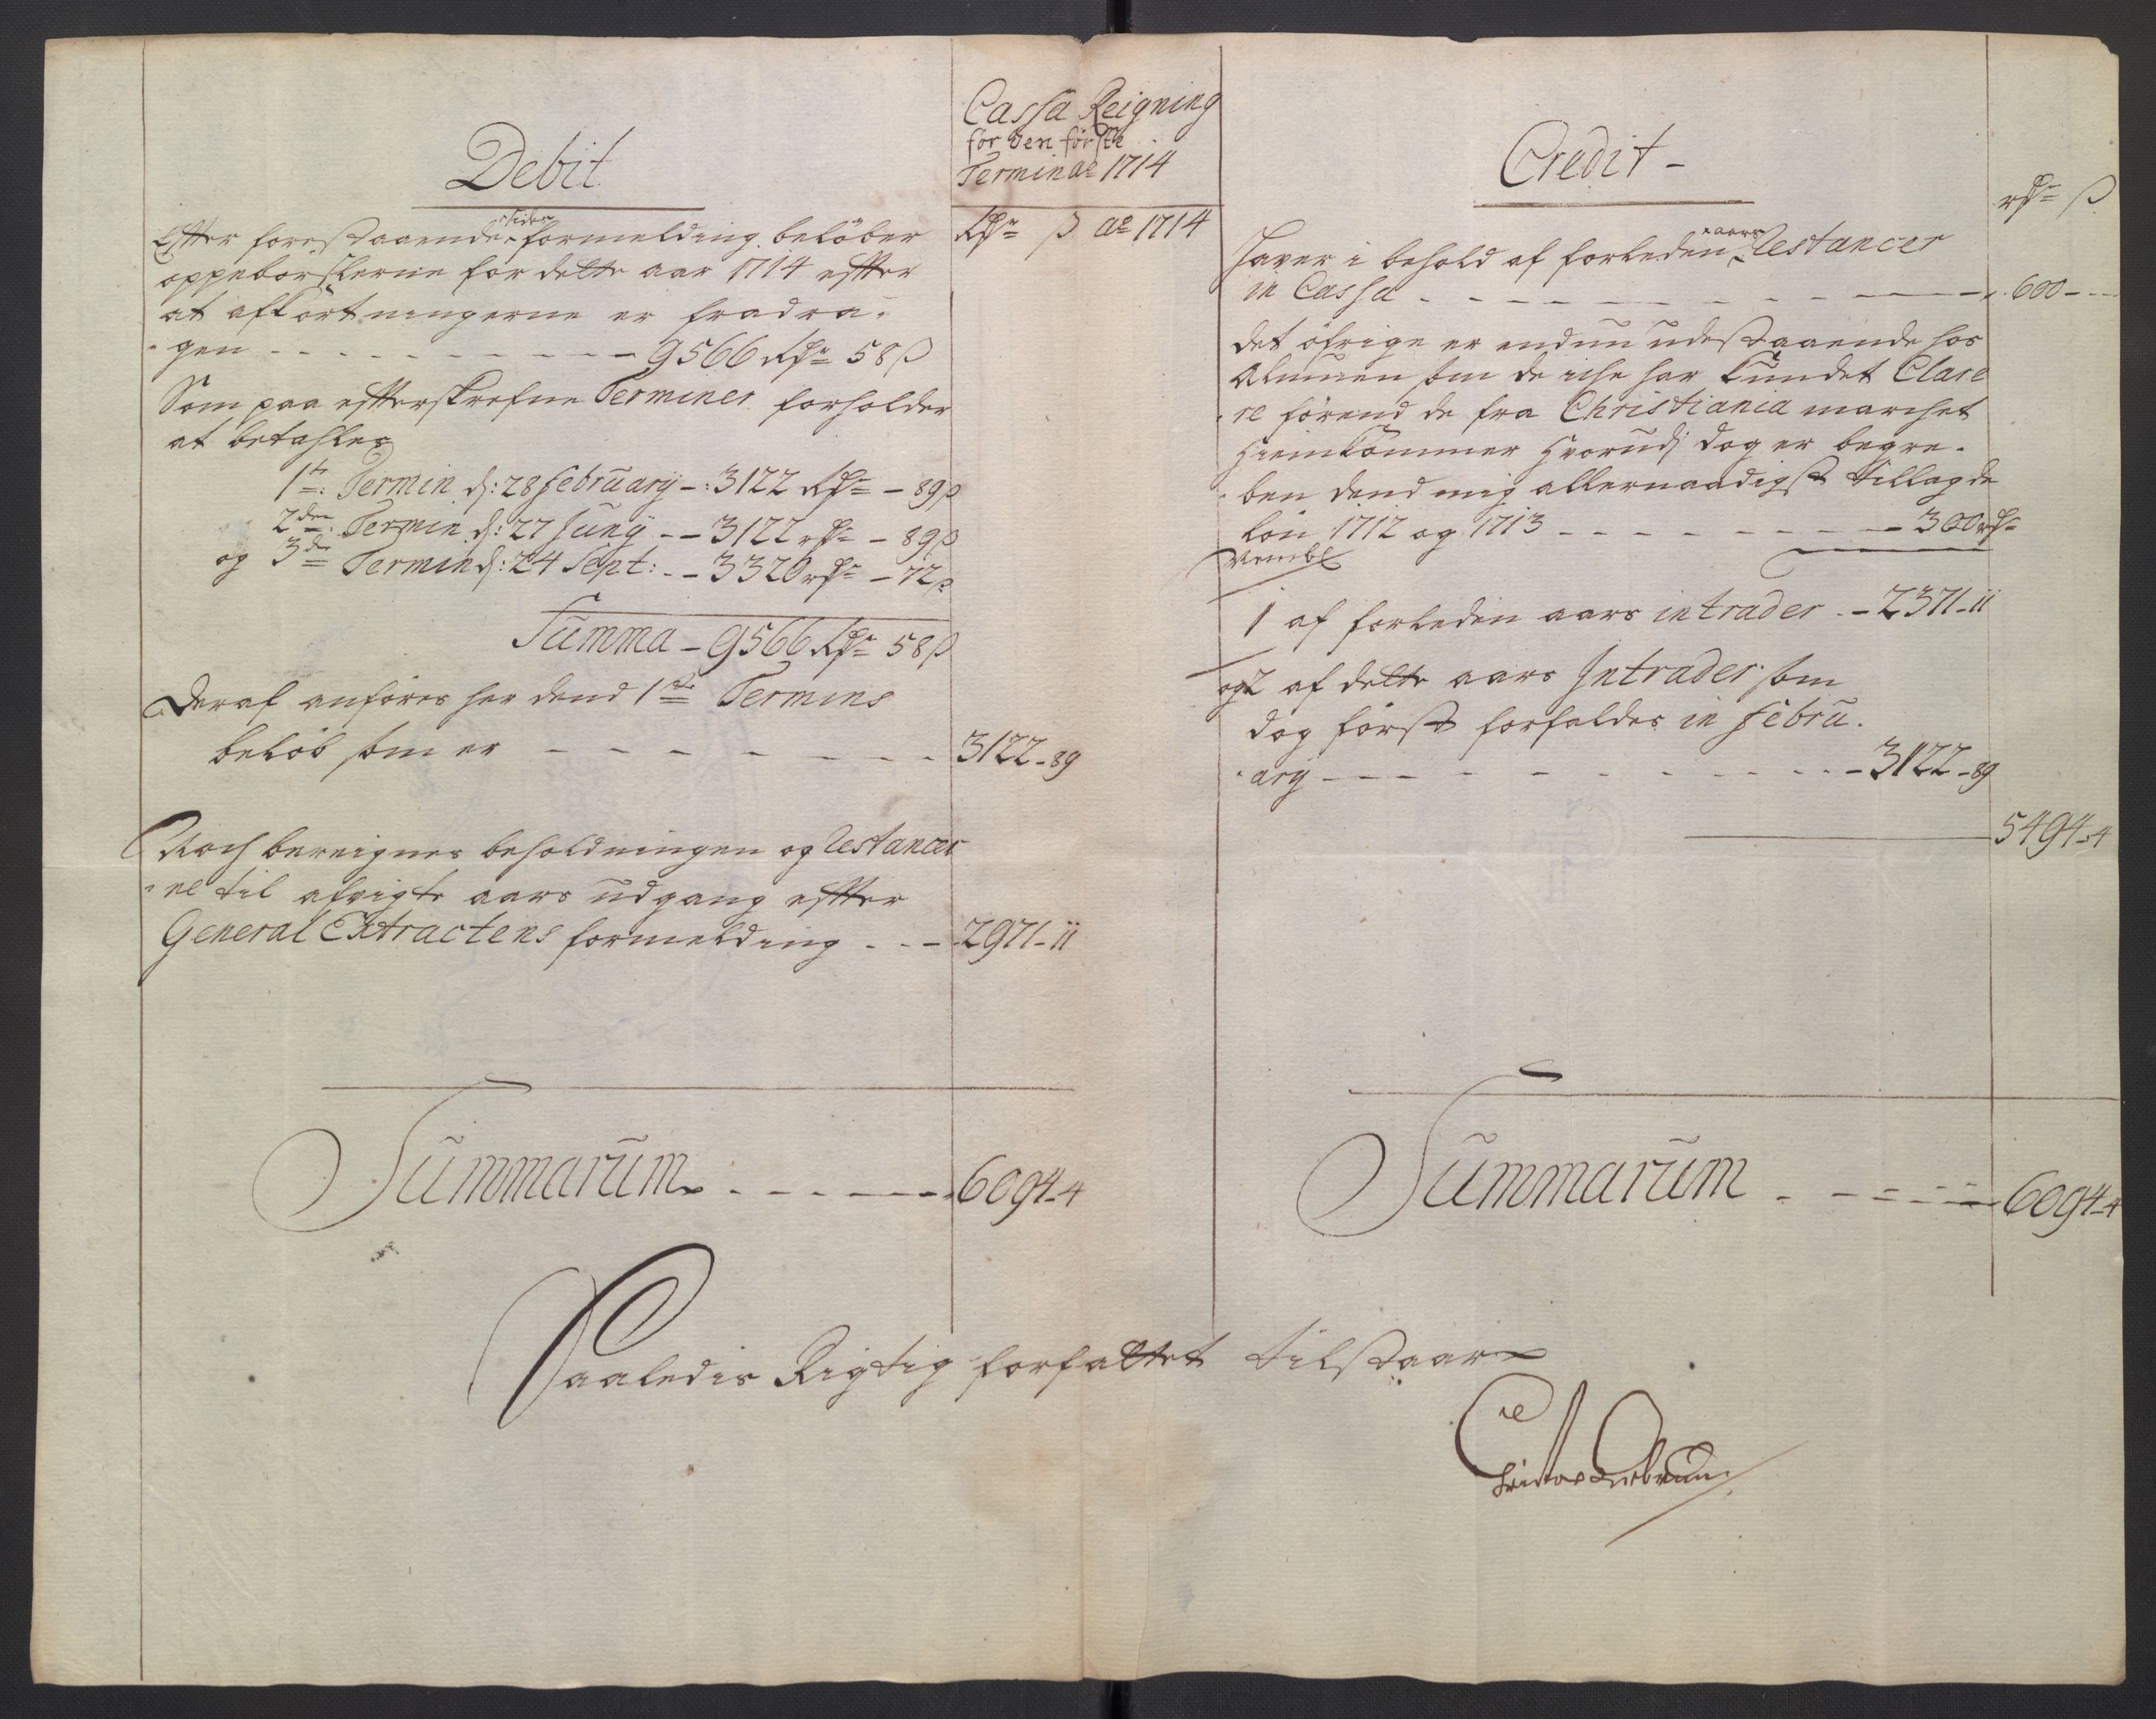 Cassa Reigning
for den förste
Termin ao 1714
Debit
Rdr ß ao 1714
Effter forestaaende sides formelding belöber
oppebörslerne for dette aar 1714 effter
at afkortningerne er fradra-
gen - - - 9566 Rdr 58 ß
Som paa effterskrefne Terminer forholder
at betahles
1te Termin d: 28 February - 3122 Rdr - 89 ß
2den Termin d: 27 Juny - - 3122 rdr - 89 ß
og 3de Termin d: 24 Sept: - - 3320 rdr - 72 ß
Summa - 9566 Rdr 58 ß
Deraf anföres her dend 1ste Termins
belöb som er - - - 3122 - 89
Noch bereignes beholdningen og Restancer
ne til afvigte aars udgang effter
General Extractens formelding - - - 2971 - 11
Summarum - - - 6094 - 4
Credit -
rdr ß
Haver i behold af forleden aars Restancer
in Cassa - - - 600 -
det öfrige er endnu udestaaende hos
Almuen som de iche har kundet Clare
re förend de fra Christiania marchet
hiemkommer hvorudj dog er begre-
ben dend mig allernaadigst tillagde
lön 1712 og 1713 - - - 300 rdr
Nembl
1 af forleden aars intrader - 2371 - 11
og 2 af dette aars Intrader som
dog först forfaldes in Febru-
ary - - - 3122 - 89
5494 - 4
Summarum - - - 6094 - 4
Saaledis Rigtig forfattet tilstaar